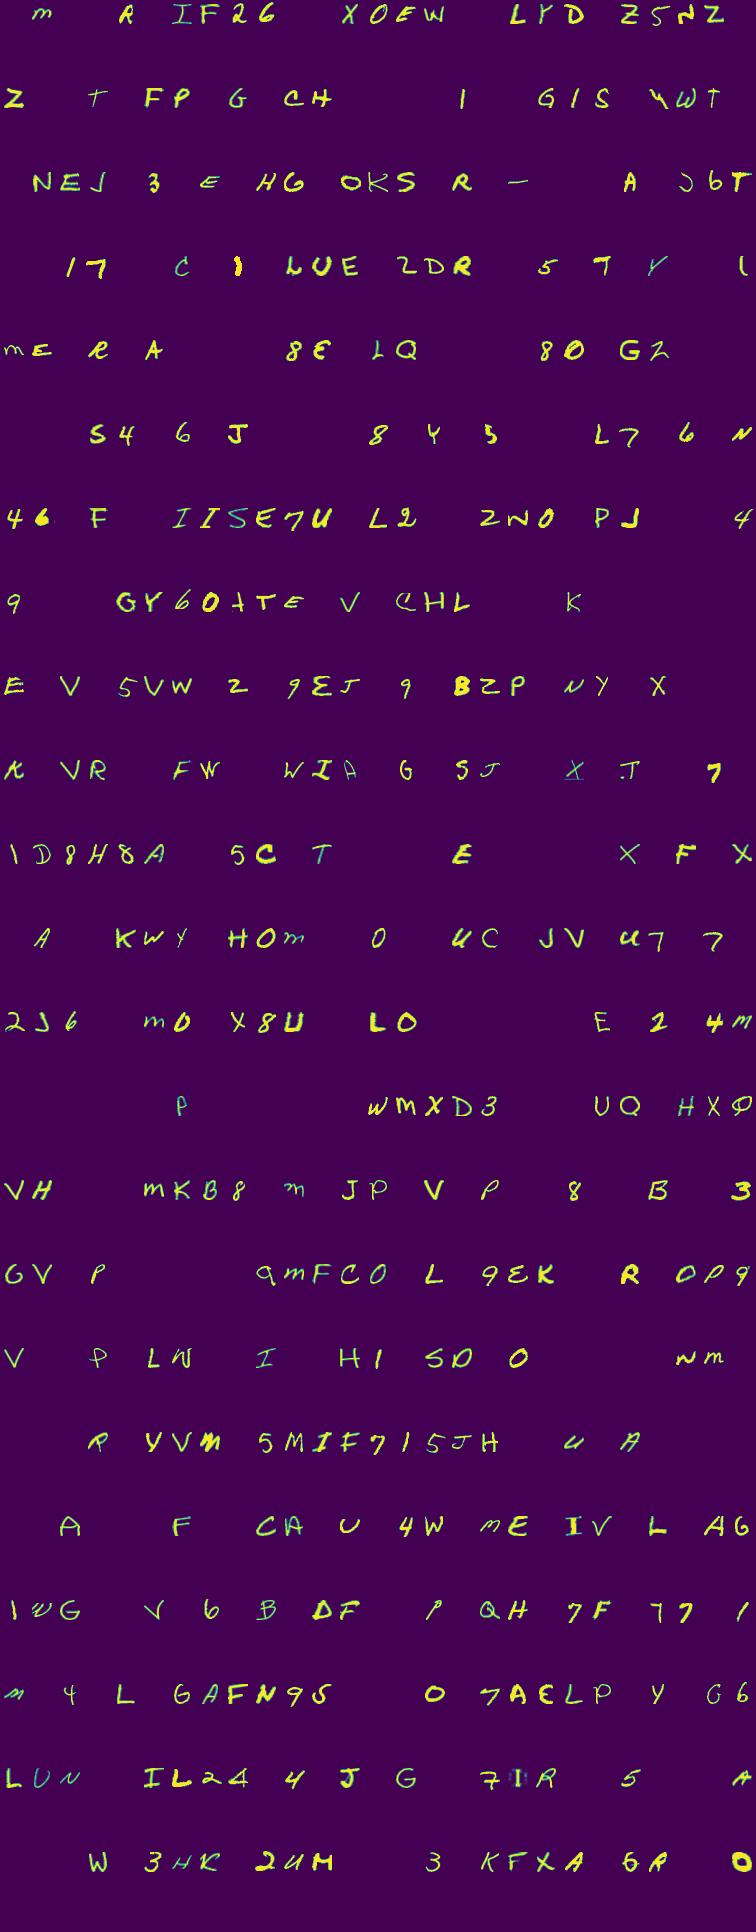 m R IF26 XOEW LYD Z5NZ
Z T FP G CH 1 G1S YWT
NEJ 3 E HG OKS R - A J6T
17 C 1 LUE 2DR 5 T Y 1
mE R A 8E LQ 80 G2
S4 6 J 8 Y 5 L7 6 N
46 F IISE7U L2 2N0 PJ 4
9 GY60tTE V CHL K
E V 5VW 2 9EJ 9 BZP NY X
K VR FW WIA G SJ X J 7
1D8H8A 5C T E X F X
A KWY HOm 0 UC JV U7 7
2J6 m0 X8U LO E 2 4m
P WMXD3 UQ HXO
VH mKB8 m JP V P 8 B 3
GV P 9mFCO L 9EK R OP9
V P LN I H1 SD O Nm
R YVM 5MIF715JH U A
A F CA U 4W mE IV L AG
1WG V 6 B DF P QH 7F 77 1
m 4 L GAFN95 0 7AELP Y G6
LUN IL24 4 J G 7IR 5 A
W 3HK 2UM 3 KFXA 6R 0